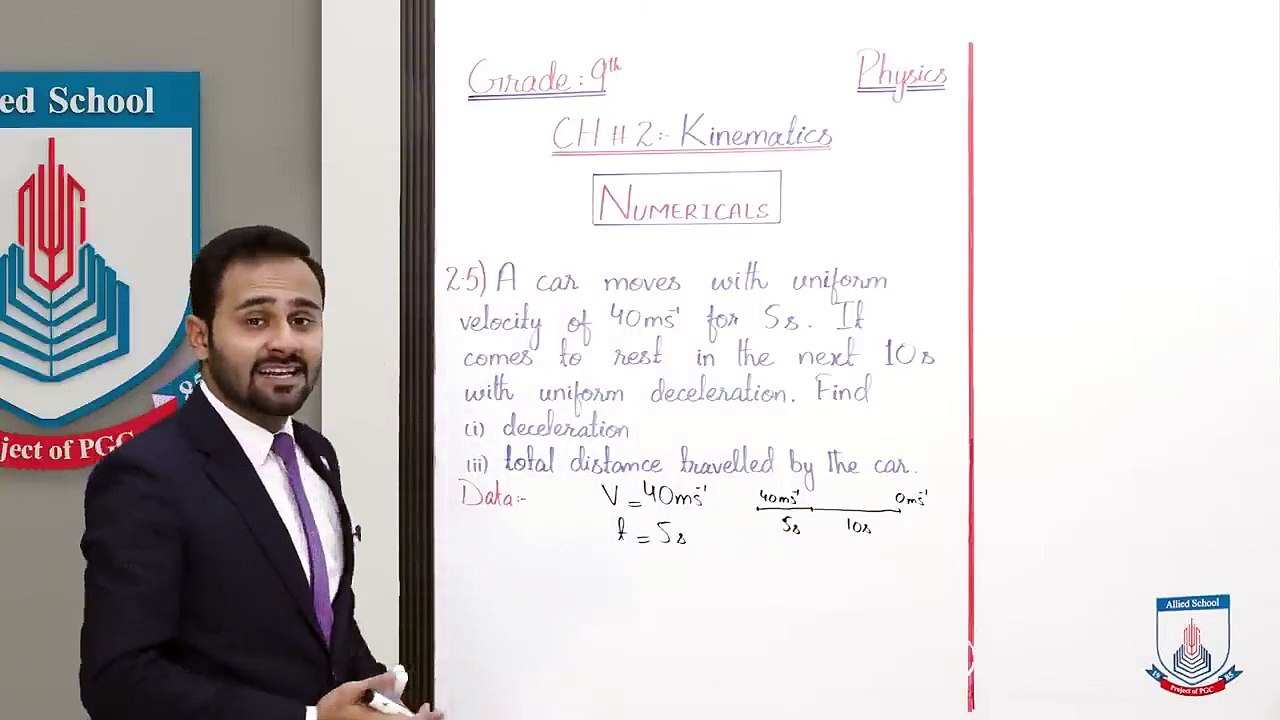 ied School
ject of PGC
Grade: 9th
Physics
CH # 2:- Kinematics
NUMERICALS
2.5) A car moves with uniform
velocity of 40ms⁻¹ for 5s. It
comes to rest in the next 10s
with uniform deceleration. Find
(i) deceleration
(ii) total distance travelled by the car.
Data:-
V = 40ms⁻¹
t = 5s
40ms⁻¹
0ms⁻¹
5s
10s
Allied School
19 85
Project of PGC